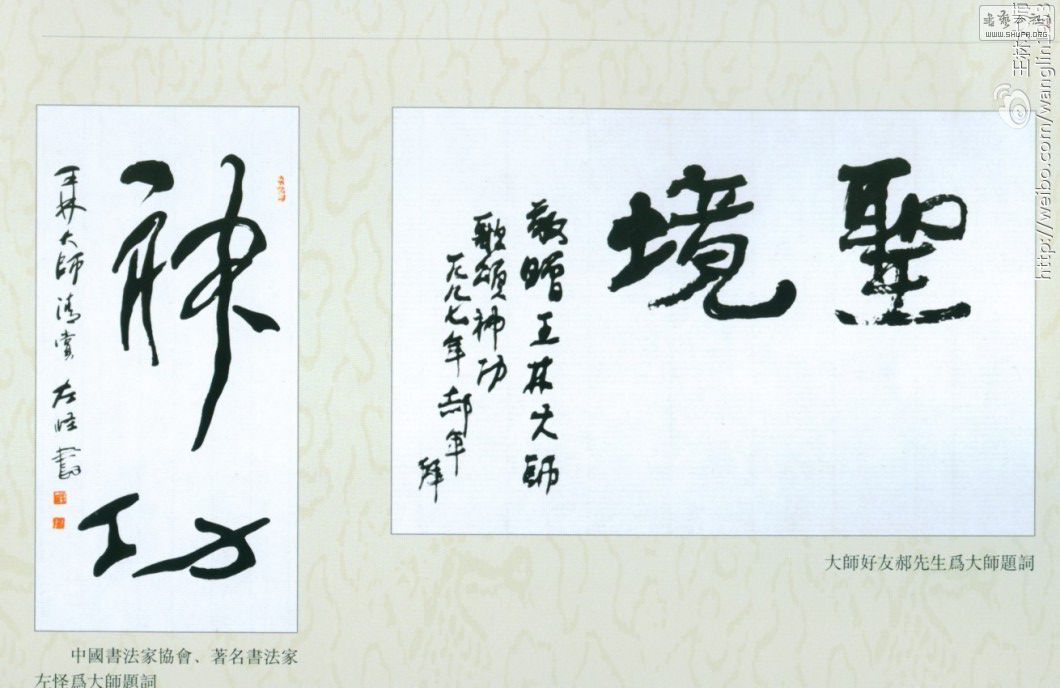 WWW.SHUFA.ORG
http://weibo.com/wanglin1208
聖境
敬贈王林大師
歌頌神功
一九九七年郝年拜
大師好友郝先生爲大師題詞
神功
王林大師清賞左怪書
中國書法家協會、著名書法家
左怪爲大師題詞